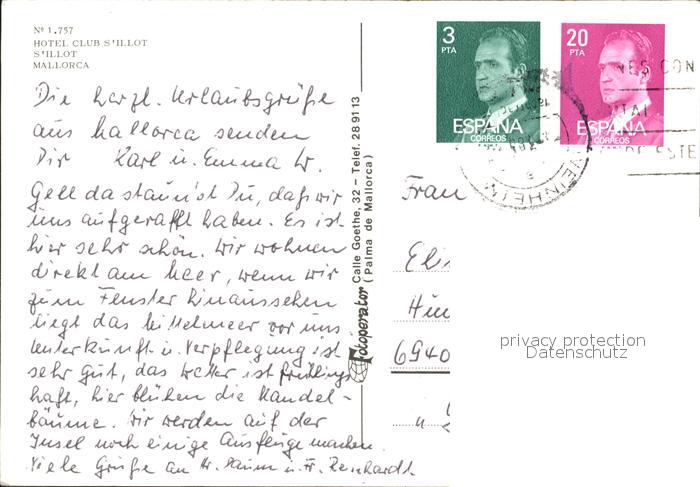 Nº 1.757
HOTEL CLUB S'ILLOT
S'ILLOT
MALLORCA
Die herzl. Urlaubsgrüße
aus Mallorca senden
Dir Karl u. Emma W.
Gell da staunst Du, daß wir
uns aufgerafft haben. Es ist
hier sehr schön. Wir wohnen
direkt am Meer, wenn wir
zum Fenster hinaussehen
liegt das Mittelmeer vor uns.
Unterkunft u. Verpflegung ist
sehr gut, das Wetter ist frühlings
haft, hier blühen die Mandel-
bäume. Wir werden auf der
Insel noch einige Ausflüge machen.
Viele Grüße an u. Fr. Reinhardt
Fotoperator
Calle Goethe, 32 - Telef. 28 91 13
( Palma de Mallorca )
3
PTA
ESPAÑA
CORREOS
20
PTA
ESPAÑA
CORREOS
WEINHEIM
CON
ESTE
Frau
Elis
6940
privacy protection
Datenschutz